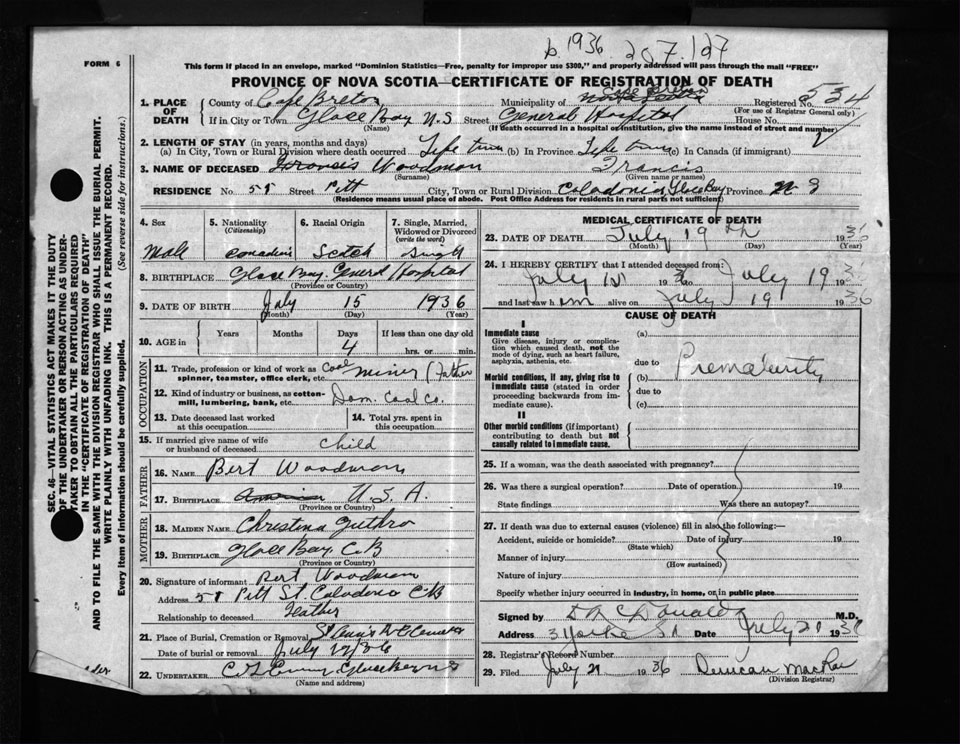 1936 207.127
FORM 6
This form if placed in an envelope, marked "Dominion Statistics—Free, penalty for improper use $300," and properly addressed will pass through the mail "FREE"
PROVINCE OF NOVA SCOTIA—CERTIFICATE OF REGISTRATION OF DEATH
1. PLACE OF DEATH County of Cape Breton Municipality of Cape Breton Registered No. 534
(For use of Registrar General only)
If in City or Town Glace Bay N.S. Street General Hospital House No.
(Name) (If death occurred in a hospital or institution, give the name instead of street and number)
2. LENGTH OF STAY (in years, months and days)
(a) In City, Town or Rural Division where death occurred Life time (b) In Province Life time (c) In Canada (if immigrant)
3. NAME OF DECEASED Francis Woodman Francis
(Surname) (Given name or names)
RESIDENCE No. 58 Street Pitt City, Town or Rural Division Caledonia Glace Bay Province N S
(Residence means usual place of abode. Post Office Address for residents in rural parts not sufficient)
4. Sex 5. Nationality (Citizenship) 6. Racial Origin 7. Single, Married, Widowed or Divorced (write the word)
Male Canadian Scotch Single
8. BIRTHPLACE Glace Bay General Hospital
(Province or Country)
9. DATE OF BIRTH July 15 1936
(Month) (Day) (Year)
10. AGE in Years Months Days 4 If less than one day old
hrs. or min.
OCCUPATION
11. Trade, profession or kind of work as spinner, teamster, office clerk, etc. Coal Miner (Father
12. Kind of industry or business, as cotton-mill, lumbering, bank, etc. Dom. Coal Co.
13. Date deceased last worked at this occupation 14. Total yrs. spent in this occupation
15. If married give name of wife or husband of deceased Child
FATHER
16. NAME Bert Woodman
17. BIRTHPLACE U.S.A.
(Province or Country)
MOTHER
18. MAIDEN NAME Christina Guthro
19. BIRTHPLACE Glace Bay, C.B
(Province or Country)
20. Signature of informant Bert Woodman
Address 58 Pitt St Caledonia C.B
Relationship to deceased Father
21. Place of Burial, Cremation or Removal St Ann's
Date of burial or removal July
22. UNDERTAKER Glace Bay N S
(Name and address)
MEDICAL CERTIFICATE OF DEATH
23. DATE OF DEATH July 19th 1936
(Month) (Day) (Year)
24. I HEREBY CERTIFY that I attended deceased from:
July 15 1936 to July 19 1936
and last saw him alive on July 19 1936
CAUSE OF DEATH
I
Immediate cause (a)
Give disease, injury or complication which caused death, not the mode of dying, such as heart failure, asphyxia, asthenia, etc.
due to
Morbid conditions, if any, giving rise to immediate cause (stated in order proceeding backwards from immediate cause). (b) Prematurity
due to
(c)
II
Other morbid conditions (if important) contributing to death but not causally related to immediate cause.
25. If a woman, was the death associated with pregnancy?
26. Was there a surgical operation? Date of operation 19
State findings Was there an autopsy?
27. If death was due to external causes (violence) fill in also the following:—
Accident, suicide or homicide? Date of injury 19
(State which)
Manner of injury
(How sustained)
Nature of injury
Specify whether injury occurred in industry, in home, or in public place
Signed by D McDonald M.D.
Address 3 Yorke St Date July 20 1936
28. Registrar's Record Number
29. Filed July 21 1936 Duncan MacRae
(Division Registrar)
SEC. 46—VITAL STATISTICS ACT MAKES IT THE DUTY
OF THE UNDERTAKER OR PERSON ACTING AS UNDER-
TAKER TO OBTAIN ALL THE PARTICULARS REQUIRED
IN THE "CERTIFICATE OF REGISTRATION OF DEATH"
AND TO FILE THE SAME WITH THE DIVISION REGISTRAR WHO SHALL ISSUE THE BURIAL PERMIT.
WRITE PLAINLY WITH UNFADING INK. THIS IS A PERMANENT RECORD.
Every item of information should be carefully supplied. (See reverse side for instructions.)